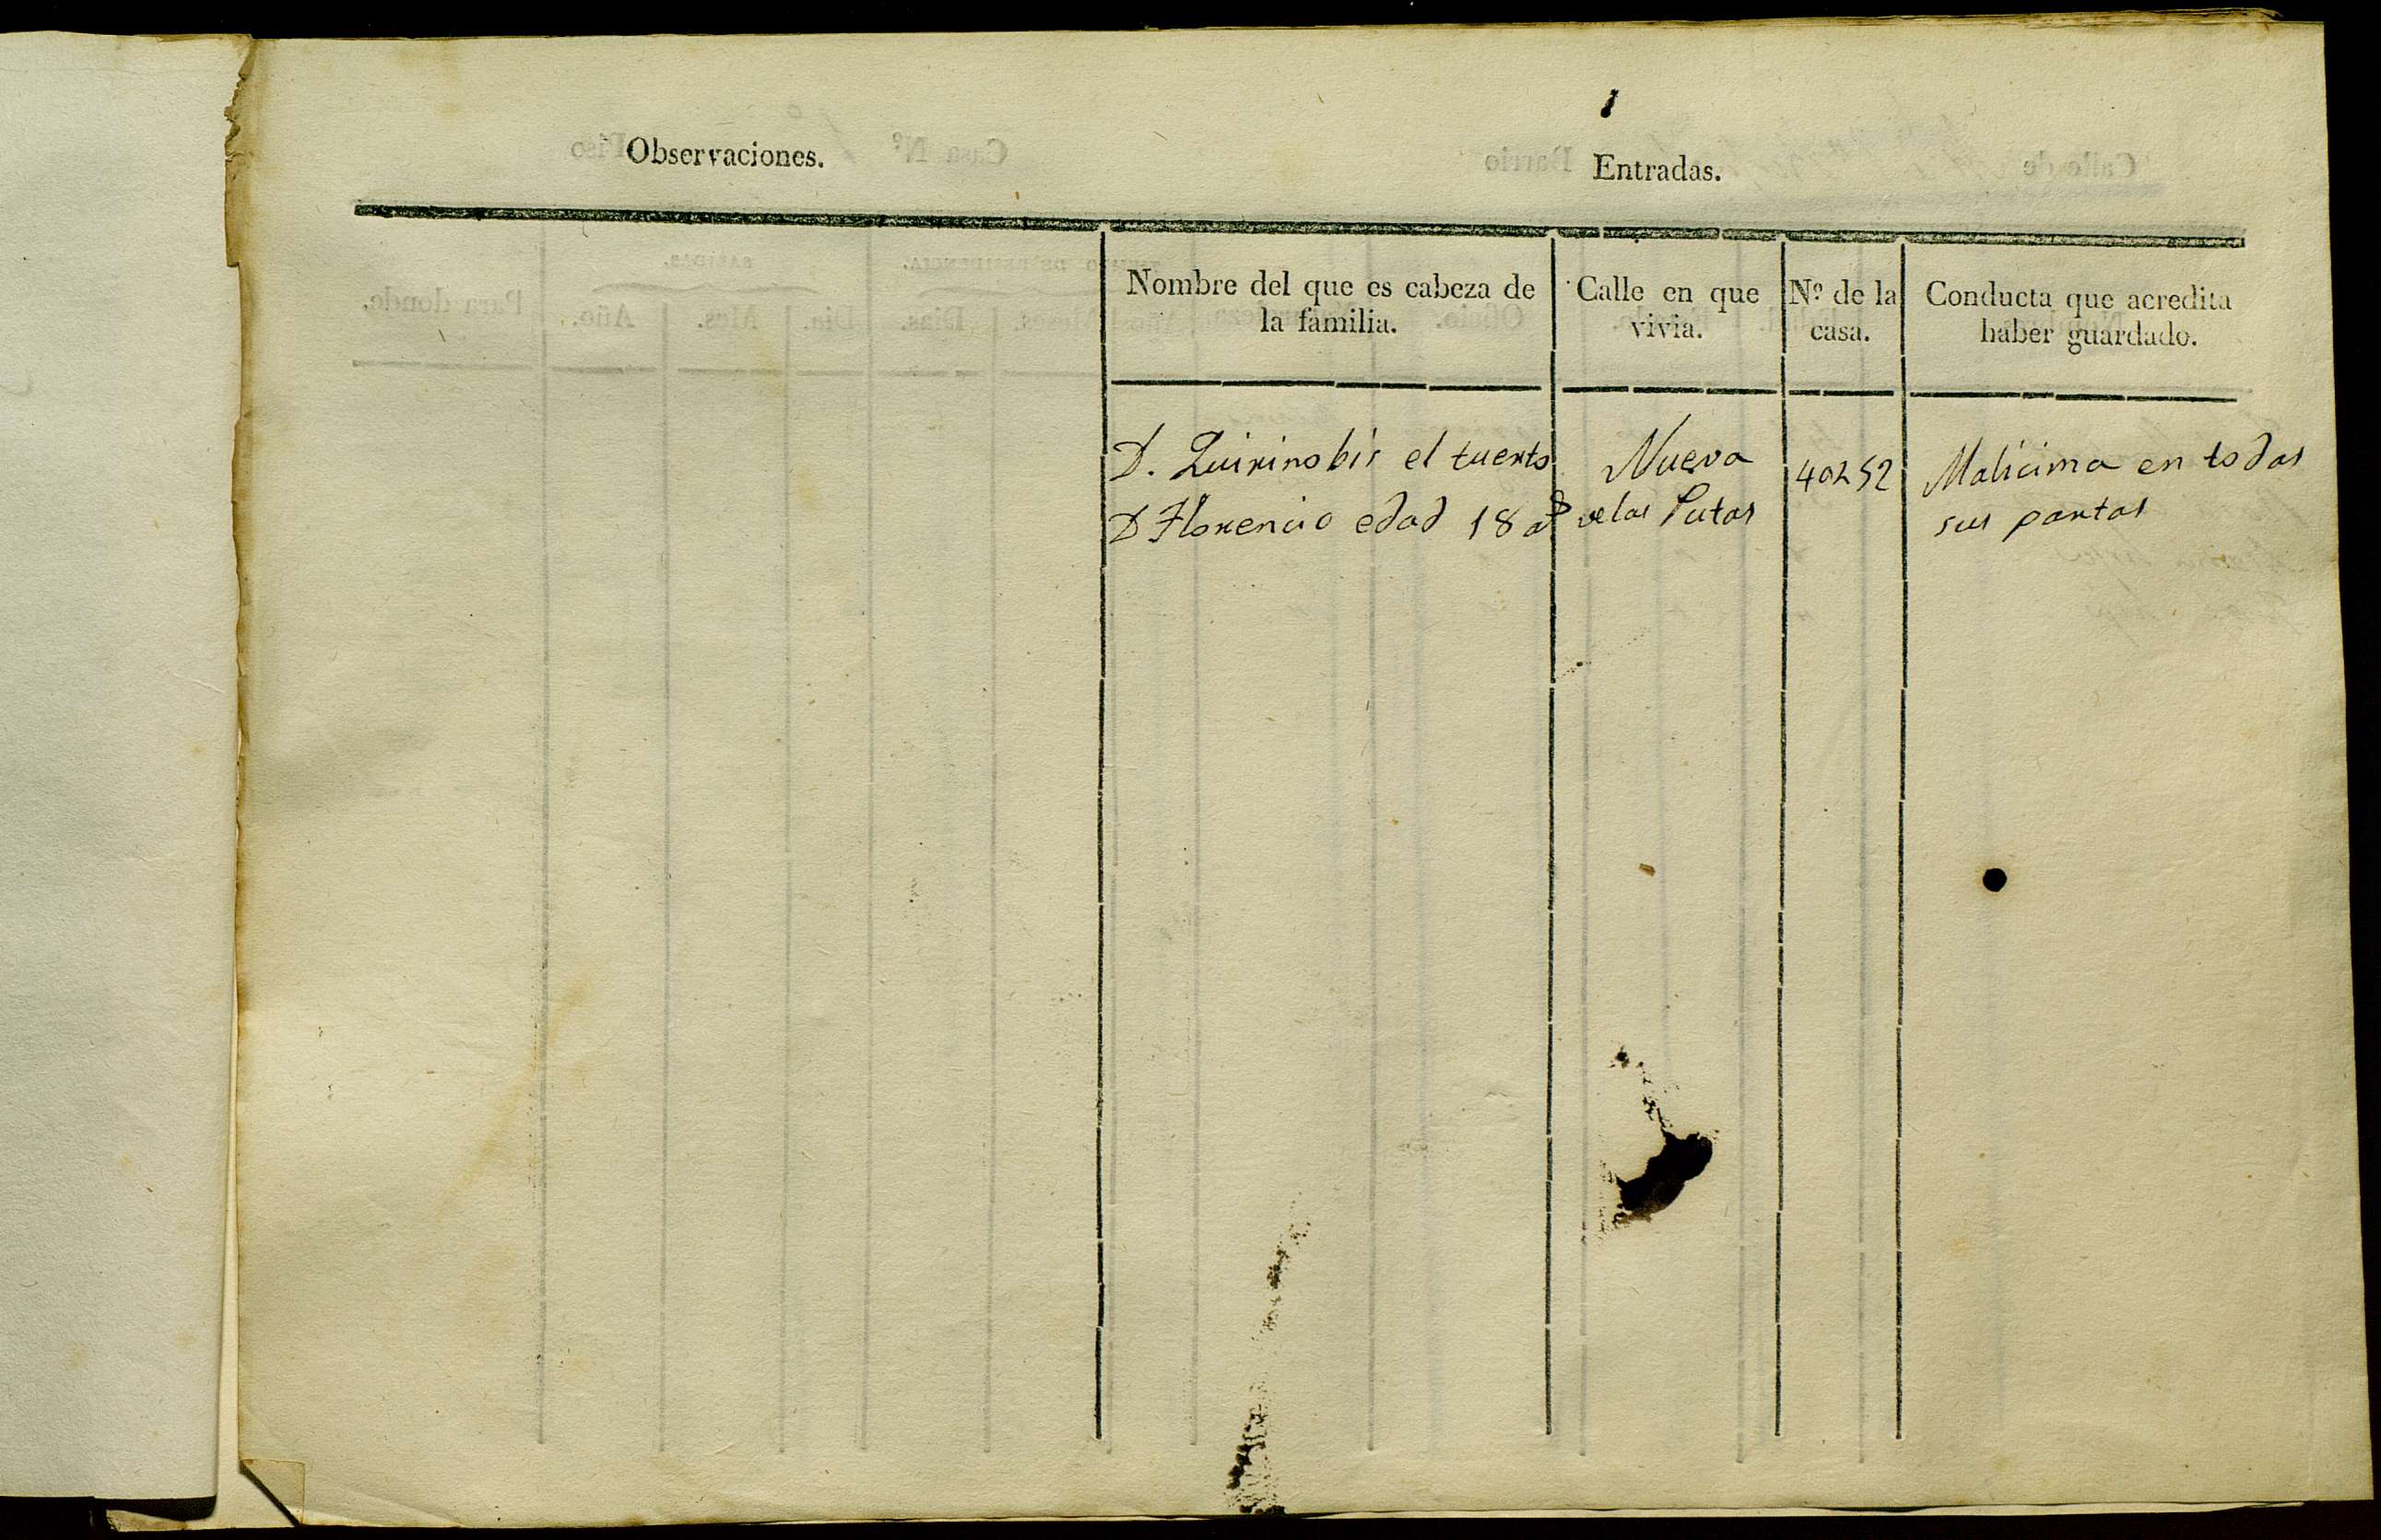 Observaciones.
Entradas.
Nombre del que es cabeza de
la familia.
Calle en que
vivia.
Nº de la
casa.
Conducta que acredita
haber guardado.
D. Quirino bis el tuerto
D Florencio edad 18 as
Nueva
de las Putas
40252
Malicima en todas
sus partas